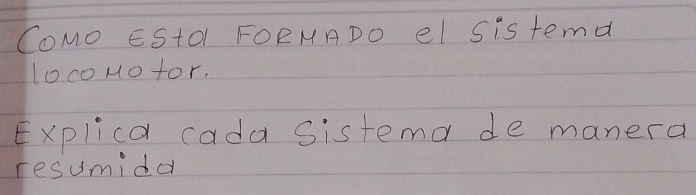 COMO ESta FORMADO el sistema
locomotor.
Explica cada sistema de manera
resumida